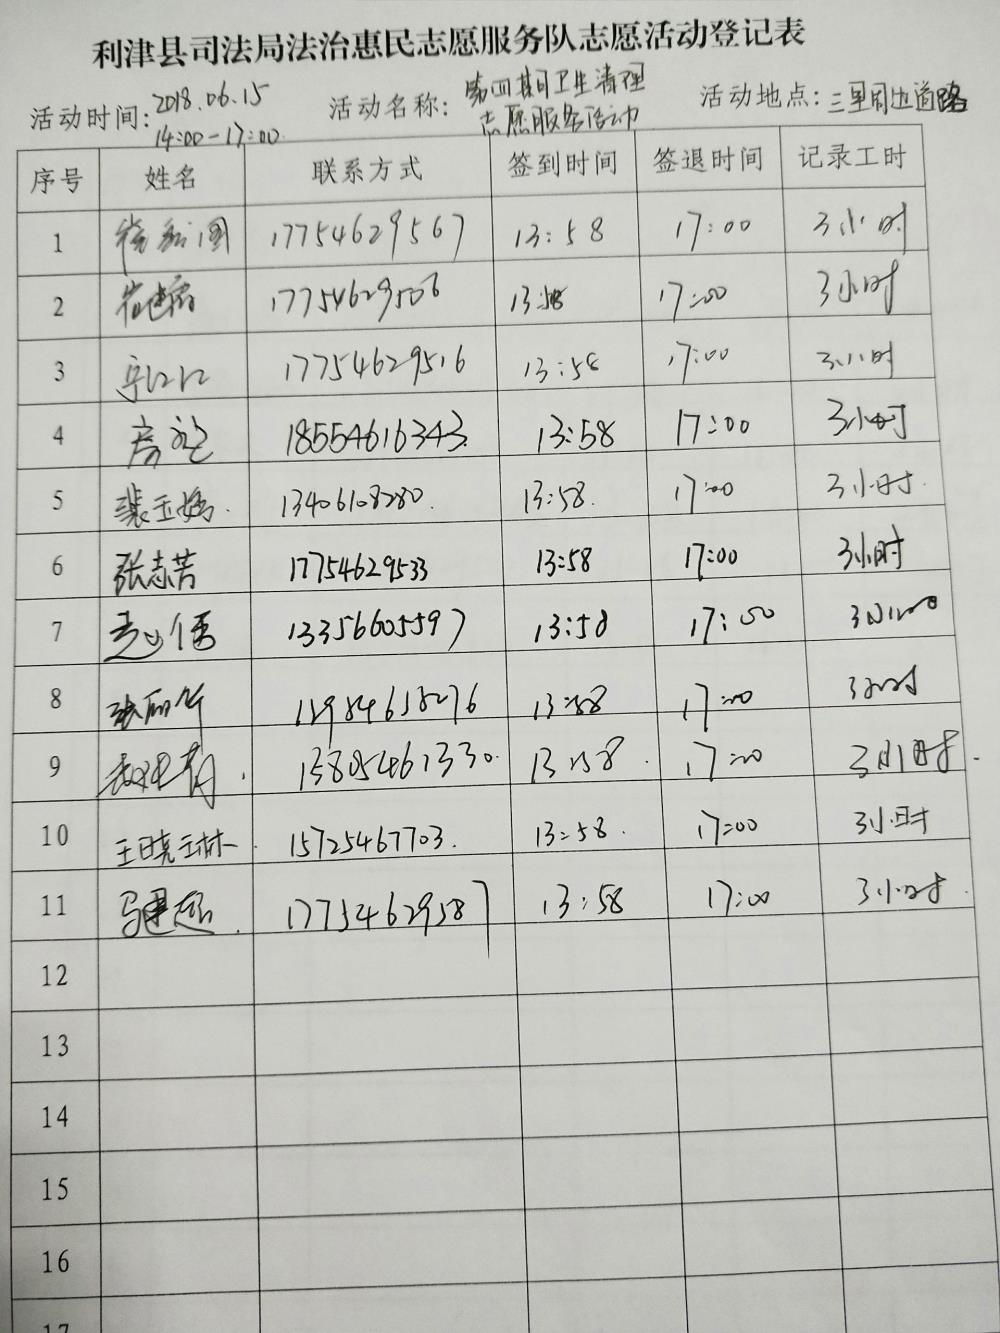 利津县司法局法治惠民志愿服务队志愿活动登记表
活动时间: 2018.06.15 14:00-17:00 活动名称: 第四期卫生清理志愿服务活动 活动地点: 三里周边道路
序号 姓名 联系方式 签到时间 签退时间 记录工时
1 17754629567 13:58 17:00 3小时
2 17754629506 13:58 17:00 3小时
3 17754629516 13:58 17:00 3小时
4 18554616343 13:58 17:00 3小时
5 13406108280 13:58 17:00 3小时
6 张志芳 17754629533 13:58 17:00 3小时
7 13356605597 13:58 17:00 3小时
8 13:58 17:00 3小时
9 13805461330 13:58 17:00 3小时
10 王晓琳 15725467703 13:58 17:00 3小时
11 17754629587 13:58 17:00 3小时
12
13
14
15
16
17